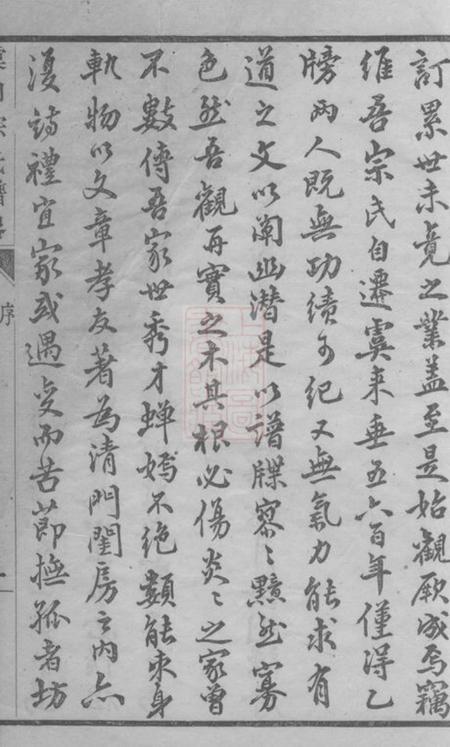 訂累世未竟之業蓋至是始觀厥成焉竊
維吾宗氏自遷虞來垂五六百年僅得乙
牓兩人既無功績可紀又無氣力能求有
道之文以闡幽潛是以譜牒寥〻黯然寡
色然吾觀再實之木其根必傷炎〻之家曾
不數傳吾家世秀才蟬嫣不絶類能束身
軌物以文章孝友著為清門閨房之内亦
復詩禮宜家或遇變而苦節撫孤者坊
序